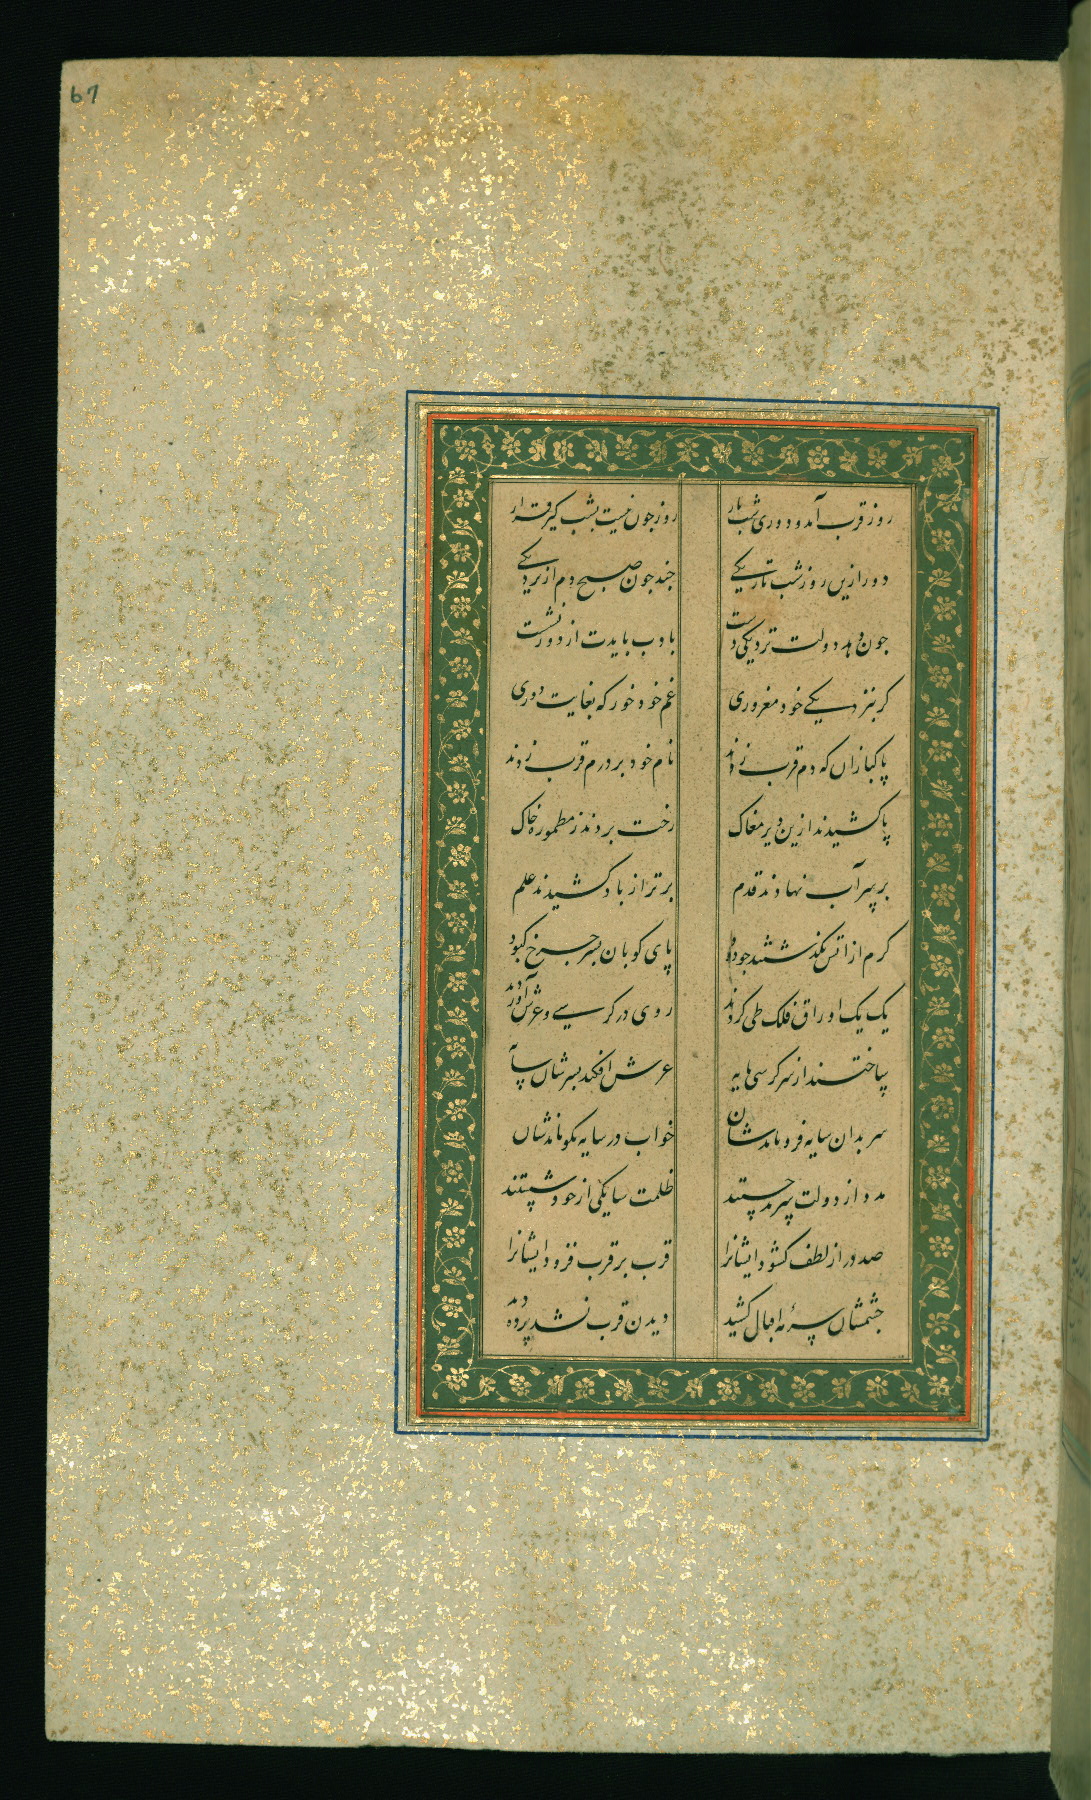 67
روز قرب آمد و دوری شب تار روز چون نیست بشب گیر قرار
دور ازین روز شب تاریکی چند چون صبح دم از نزدیکی
چون دهد دولت نزدیکی دست بادب بایدت از دور نشست
گر بنزدیکی خود مغروری غم خود خور که بغایت دوری
پاکبازان که دم قرب زدند نام خود بر درم قرب زدند
پا کشیدند ازین دیر مغاک رخت بردند ز مطموره خاک
بر سر آب نهادند قدم برتر از باد کشیدند علم
گرم از آتش بگذشتند چو دود پای کوبان بسر چرخ کبود
یک یک اوراق فلک طی کردند روی در کرسی و عرش آوردند
ساختند از سر کرسی پایه عرش افکند بسرشان سایه
سر بدان سایه فرو ماندشان خواب در سایه نکو ماندشان
مدد از دولت سرمد جستند ظلمت سایگی از خود شستند
صد در از لطف گشود ایشانرا قرب بر قرب فزود ایشانرا
چشمشان سرمه اقبال کشید دیدن قرب نشد پرده دید